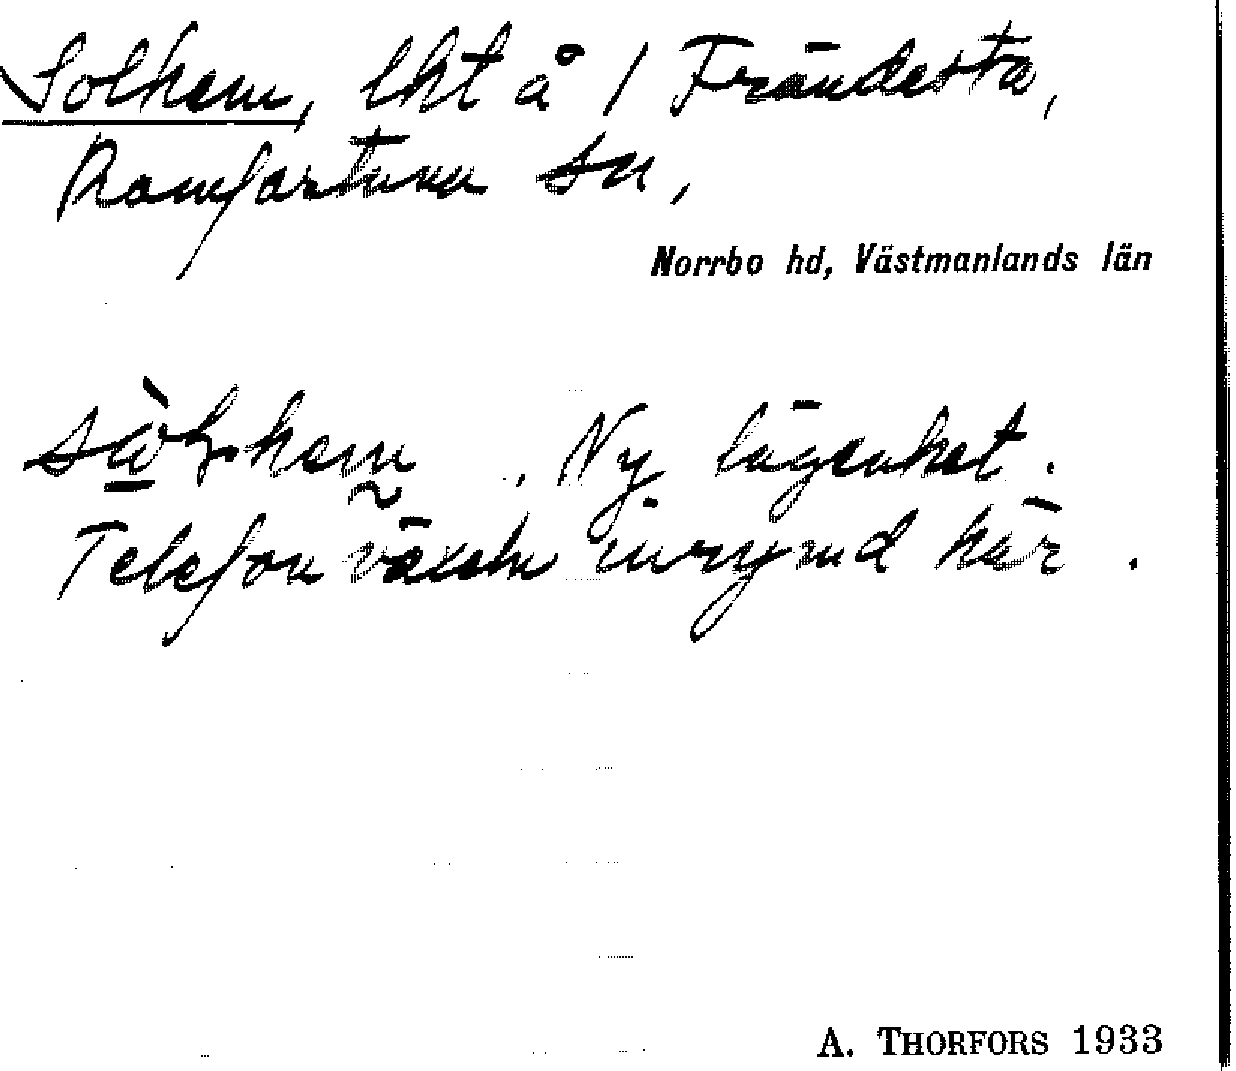 Solhem, lht å 1 Frändesta,
Romfartuna sn,
Norrbo hd, Västmanlands län
Ny lägenhet.
Telefonväxeln inrymd här.
A. THORFORS 1933